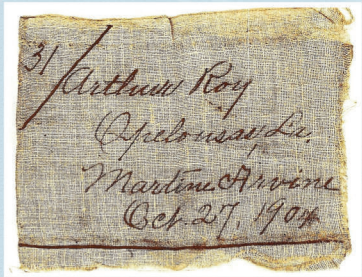 31/Arthur Roy
Opelousas, La.
Martine Arvine
Oct. 27, 1904